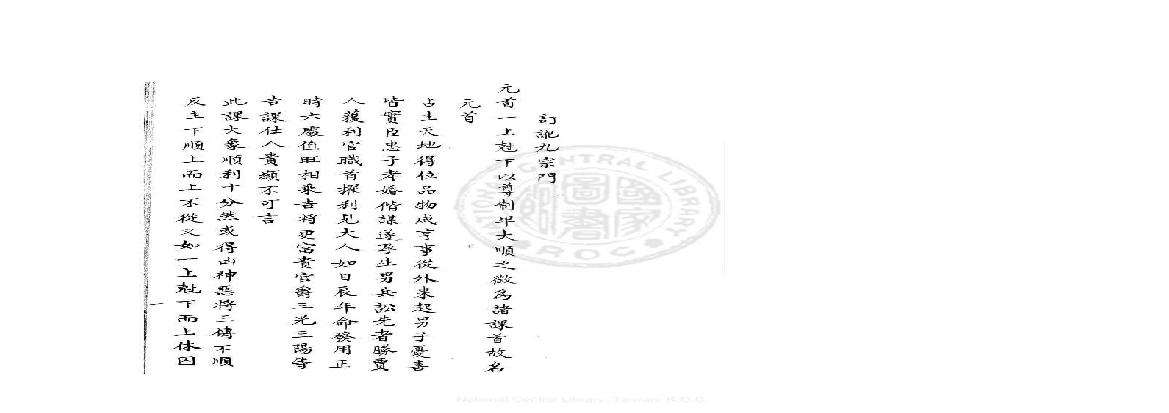 訂訛九宗門
元首一上尅下以尊制卑大順之徵為諸課首故名
元首
占主天地得位品物咸亨事從外來起男子憂喜
皆實臣忠子孝婚偕謀遂孕生男兵訟先者勝賈
人獲利官職首擢利見大人如日辰年命發用正
時六處值旺相乘吉將更富貴官爵三光三陽等
吉課仕人貴顯不可言
此課大象順利十分然或得凶神惡將三傳不順
反主下順上而上不從又如一上尅下而上休囚
一
NATIONAL CENTRAL LIBRARY
國家圖書館
ROC
National Central Library, Taiwan, R.O.C